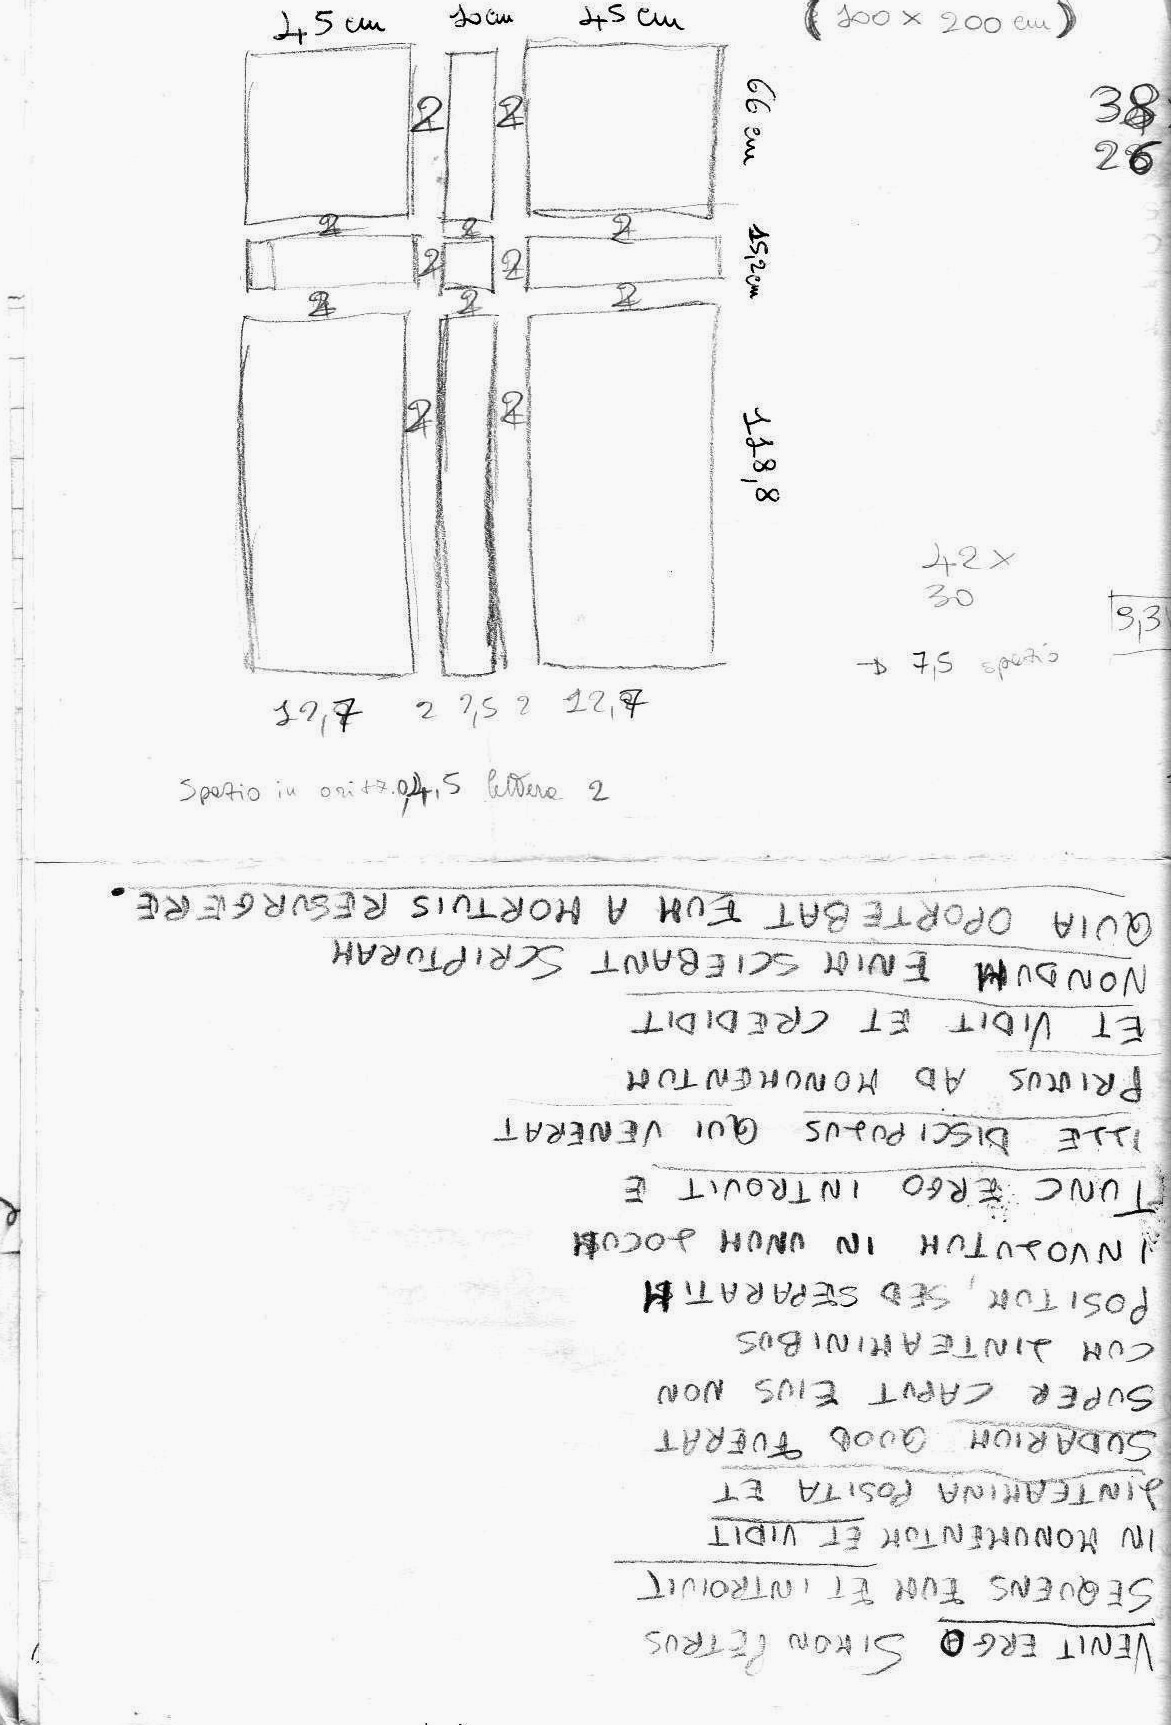 45 cm 10 cm 45 cm (100 × 200 cm)
38
26
2 2
66 cm
2 2 2
2 2
15,2 cm
2 2 2
2 2
118,8
42 ×
30
9,3
→ 7,5 spazio
12,7 2 7,5 2 12,7
Spazio in orizz. 0,4,5 lettera 2
VENIT ERGO SIMON PETRUS
SEQUENS EUM ET INTROIVIT
IN MONUMENTUM ET VIDIT
LINTEAMINA POSITA ET
SUDARIUM QUOD FUERAT
SUPER CAPUT EIUS NON
CUM LINTEAMINIBUS
POSITUM, SED SEPARATIM
INVOLUTUM IN UNUM LOCUM
TUNC ERGO INTROVIT E
ILLE DISCIPULUS QUI VENERAT
PRIMUS AD MONUMENTUM
ET VIDIT ET CREDIDIT
NONDUM ENIM SCIEBANT SCRIPTURAM
QUIA OPORTEBAT EUM A MORTUIS RESURGERE.